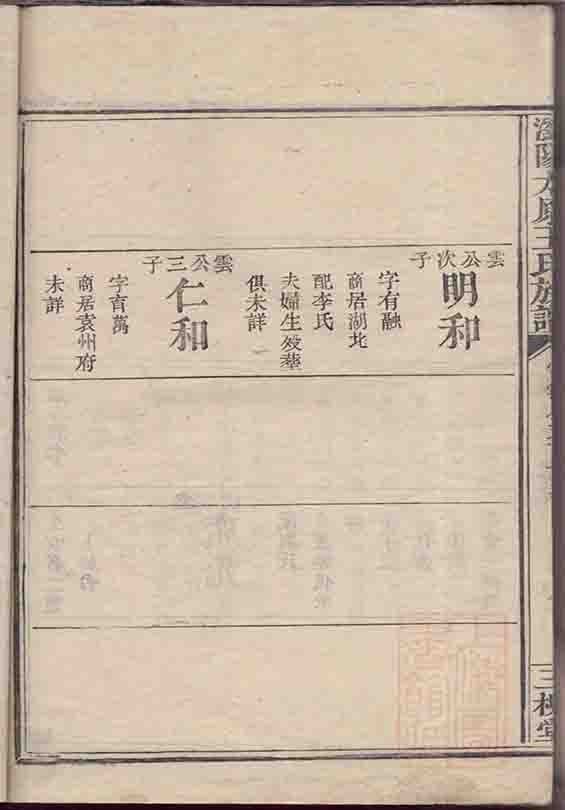 太原王氏族譜
雲公次子
明和
字有融
商居湖北
配李氏
夫婦生殁塟
俱未詳
雲公三子
仁和
字育萬
商居袁州府
未詳
三槐堂